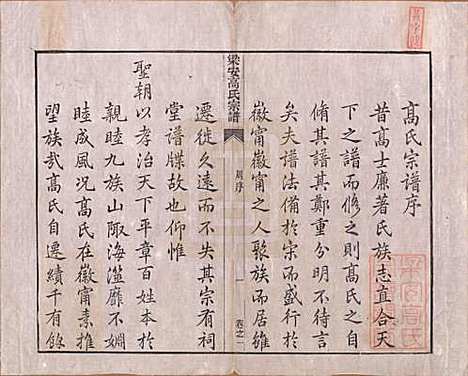 高氏宗譜序
昔高士廉著氏族志直合天
下之譜而脩之則高氏之自
脩其譜其鄭重分明不待言
矣夫譜法備於宋而盛行於
徽甯徽甯之人聚族而居雖
梁安高氏宗譜
周序
一
卷之一
遷徙久遠而不失其宗有祠
堂譜牒故也仰惟
聖朝以孝治天下平章百姓本於
親睦九族山陬海澨靡不婣
睦成風況高氏在徽甯素推
望族哉高氏自遷績千有餘